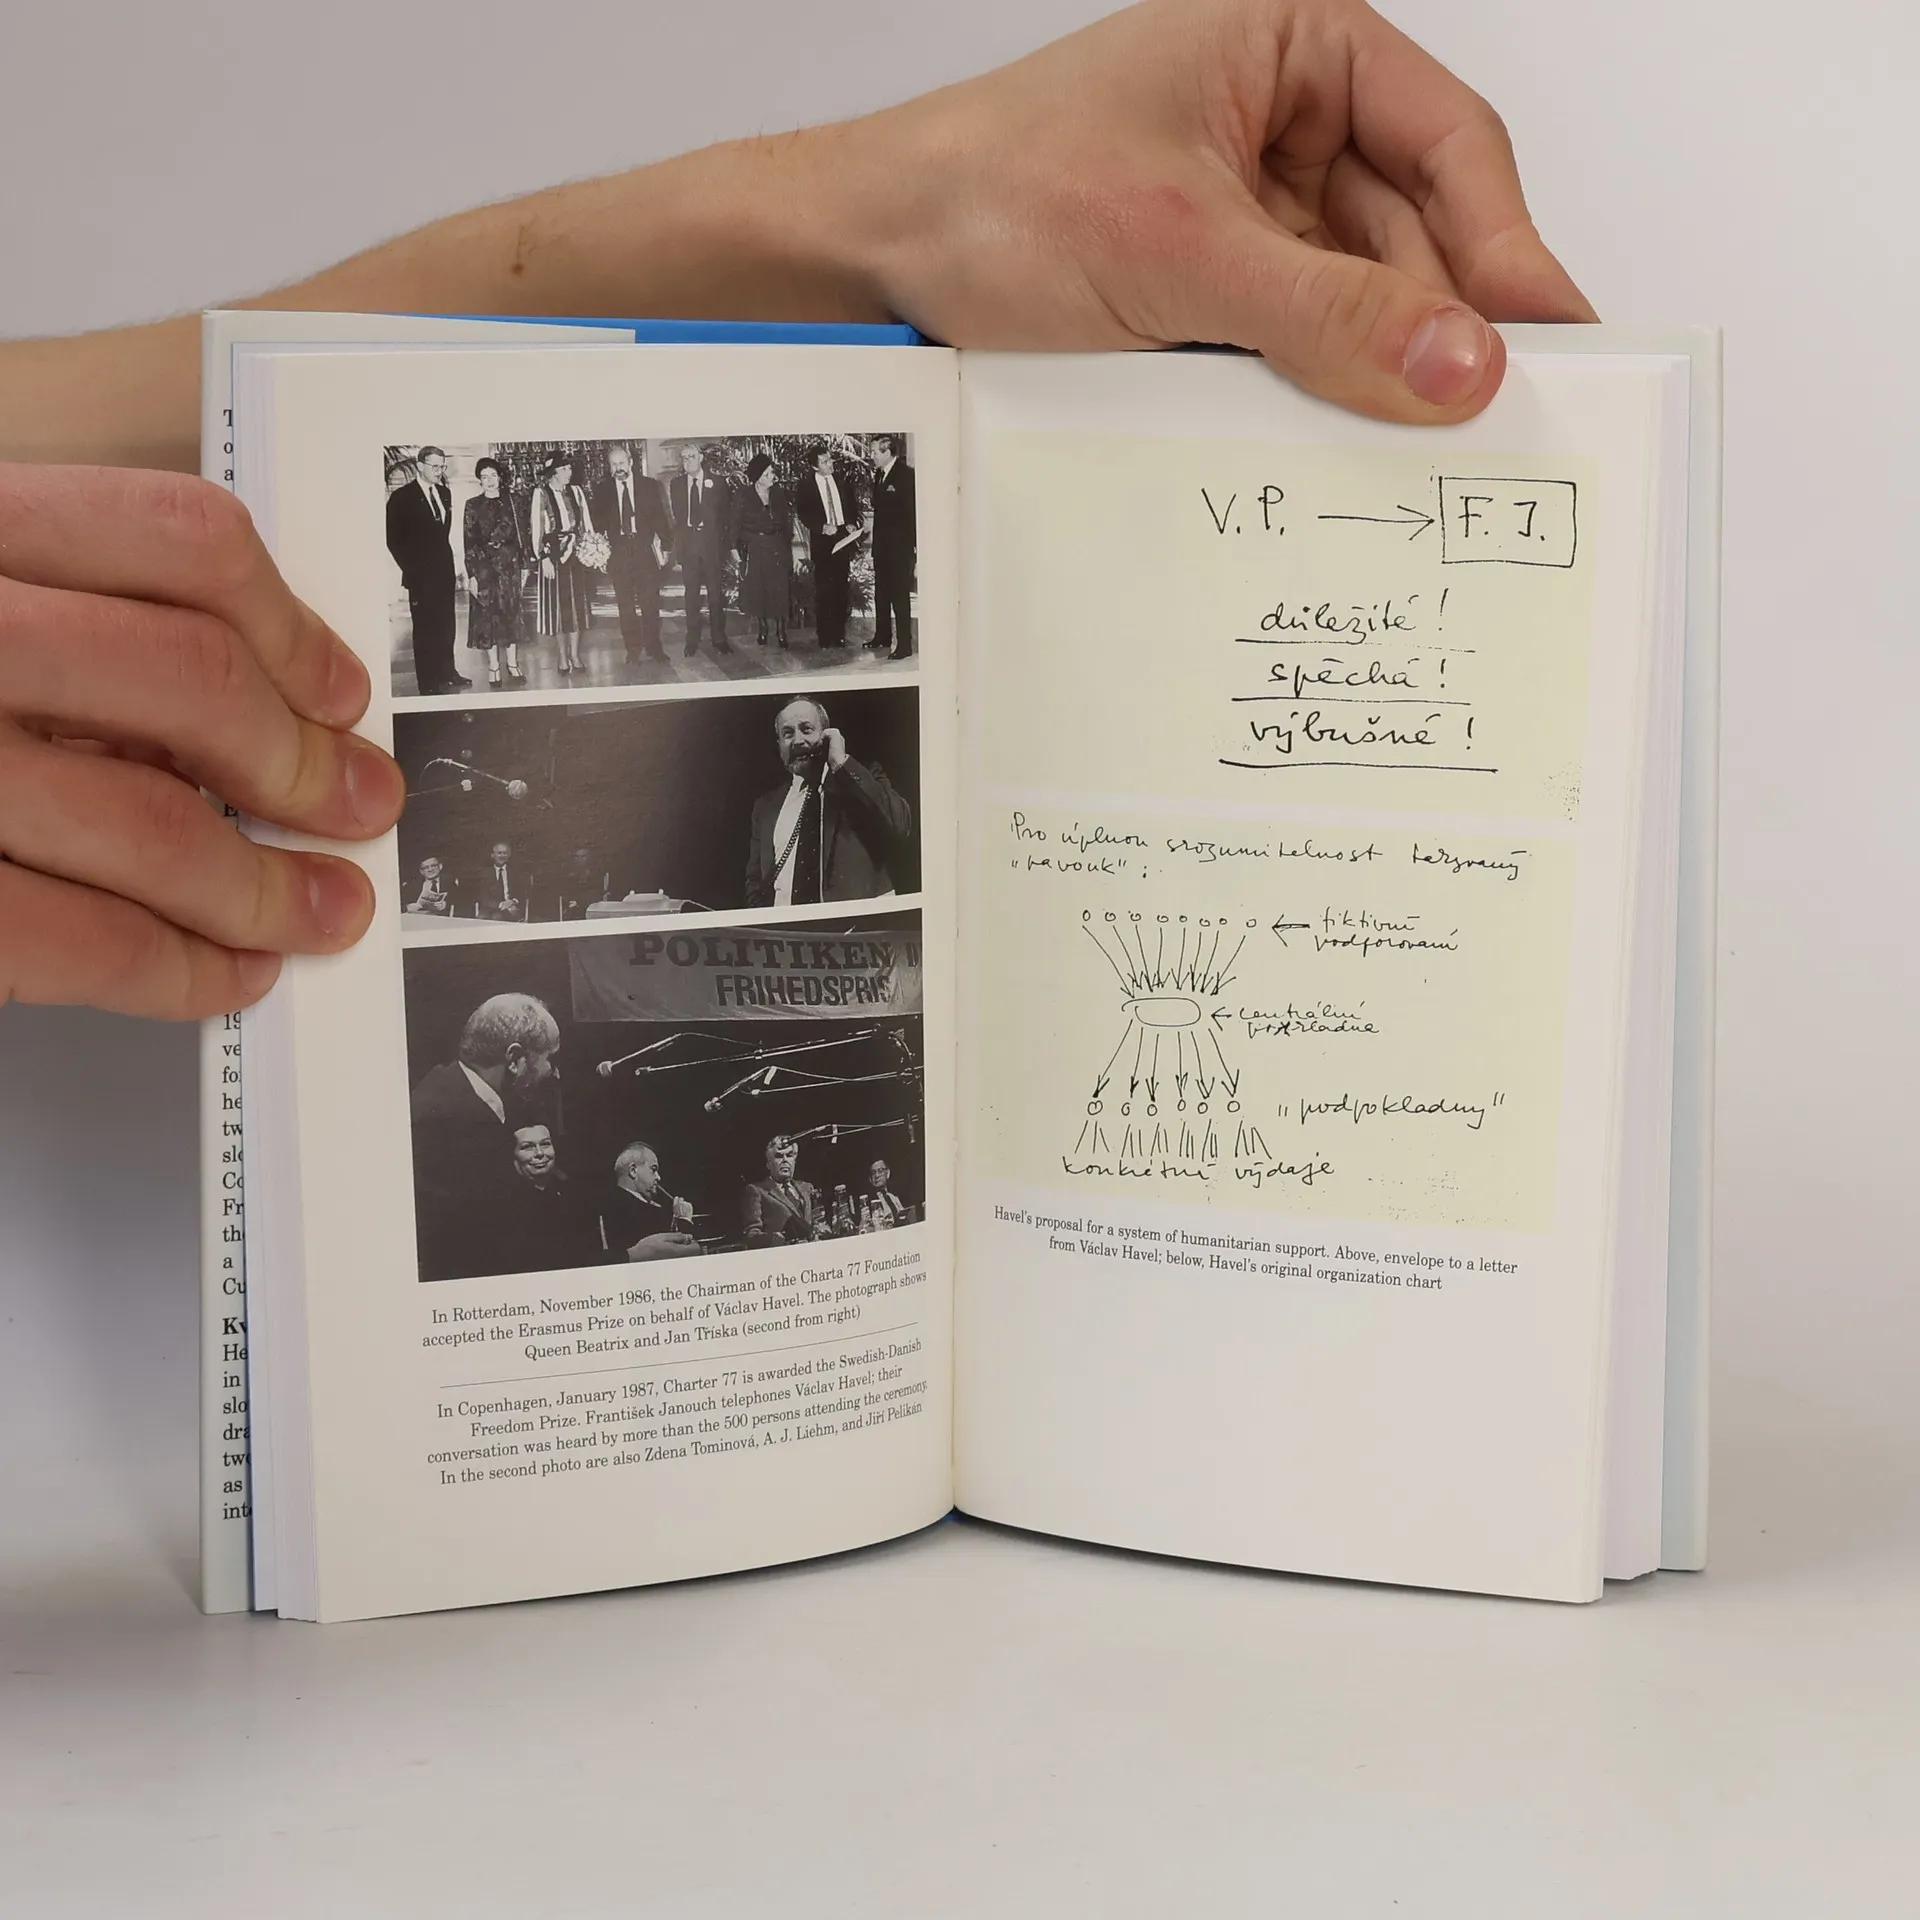 T
o
a
E
19
ve
fo
he
tw
slo
Co
Fr
th
a
Cu
Kv
He
in
slo
dra
two
as
int
POLITIKEN
FRIHEDSPRIS
In Rotterdam, November 1986, the Chairman of the Charta 77 Foundation
accepted the Erasmus Prize on behalf of Václav Havel. The photograph shows
Queen Beatrix and Jan Tříska (second from right)
In Copenhagen, January 1987, Charter 77 is awarded the Swedish-Danish
Freedom Prize. František Janouch telephones Václav Havel; their
conversation was heard by more than the 500 persons attending the ceremony.
In the second photo are also Zdena Tominová, A. J. Liehm, and Jiří Pelikán
V. P. → F. J.
důležité!
spěchá!
výbušné!
Pro úplnou srozumitelnost tarzvaný
"pavouk":
← fiktivní
podporovaní
← centrální
pokladna
"podpokladny"
konkrétní výdaje
Havel's proposal for a system of humanitarian support. Above, envelope to a letter
from Václav Havel; below, Havel's original organization chart